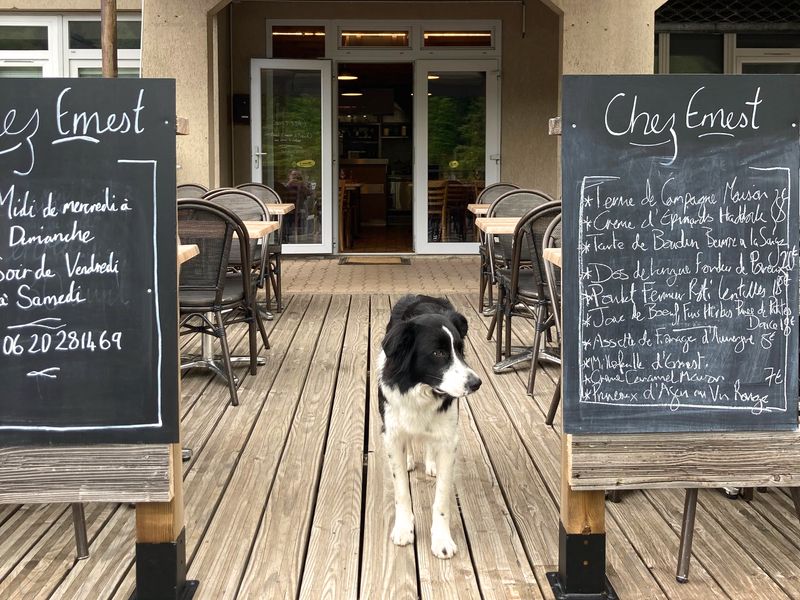 ez Ernest
Midi de mercredi à
Dimanche
soir de Vendredi
à Samedi
06 20 28 14 69
Chez Ernest
* Terrine de Campagne Maison
* Crème d'Épinards Haddock
* Tarte de Boudin Beurre
* Dos de Fondue de Poireaux
* Poulet Fermier Rôti Lentilles
* Joue de Boeuf, Fines Herbes Purée de
* Assiette de Fromage d'Auvergne
* Millefeuille d'Ernest
* Crème Caramel Maison 7€
* Pruneaux d'Agen au Vin Rouge